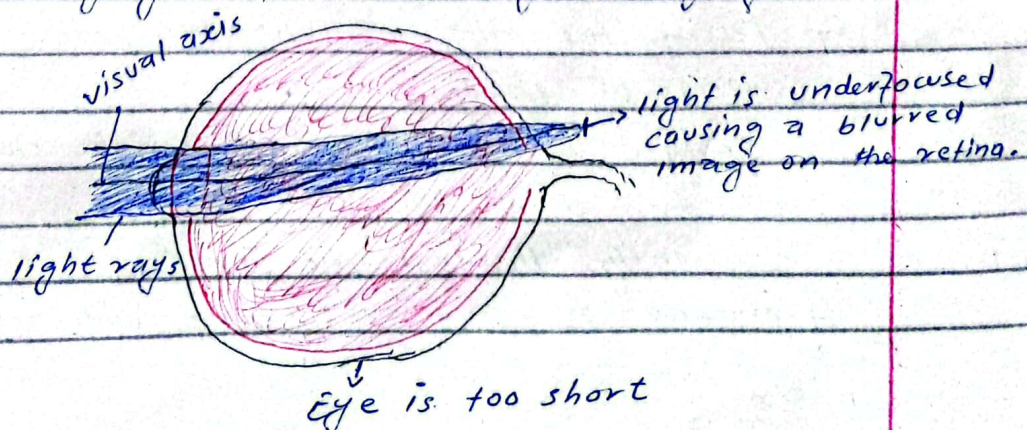 visual axis
light is underfocused
causing a blurred
image on the retina.
light rays
Eye is too short